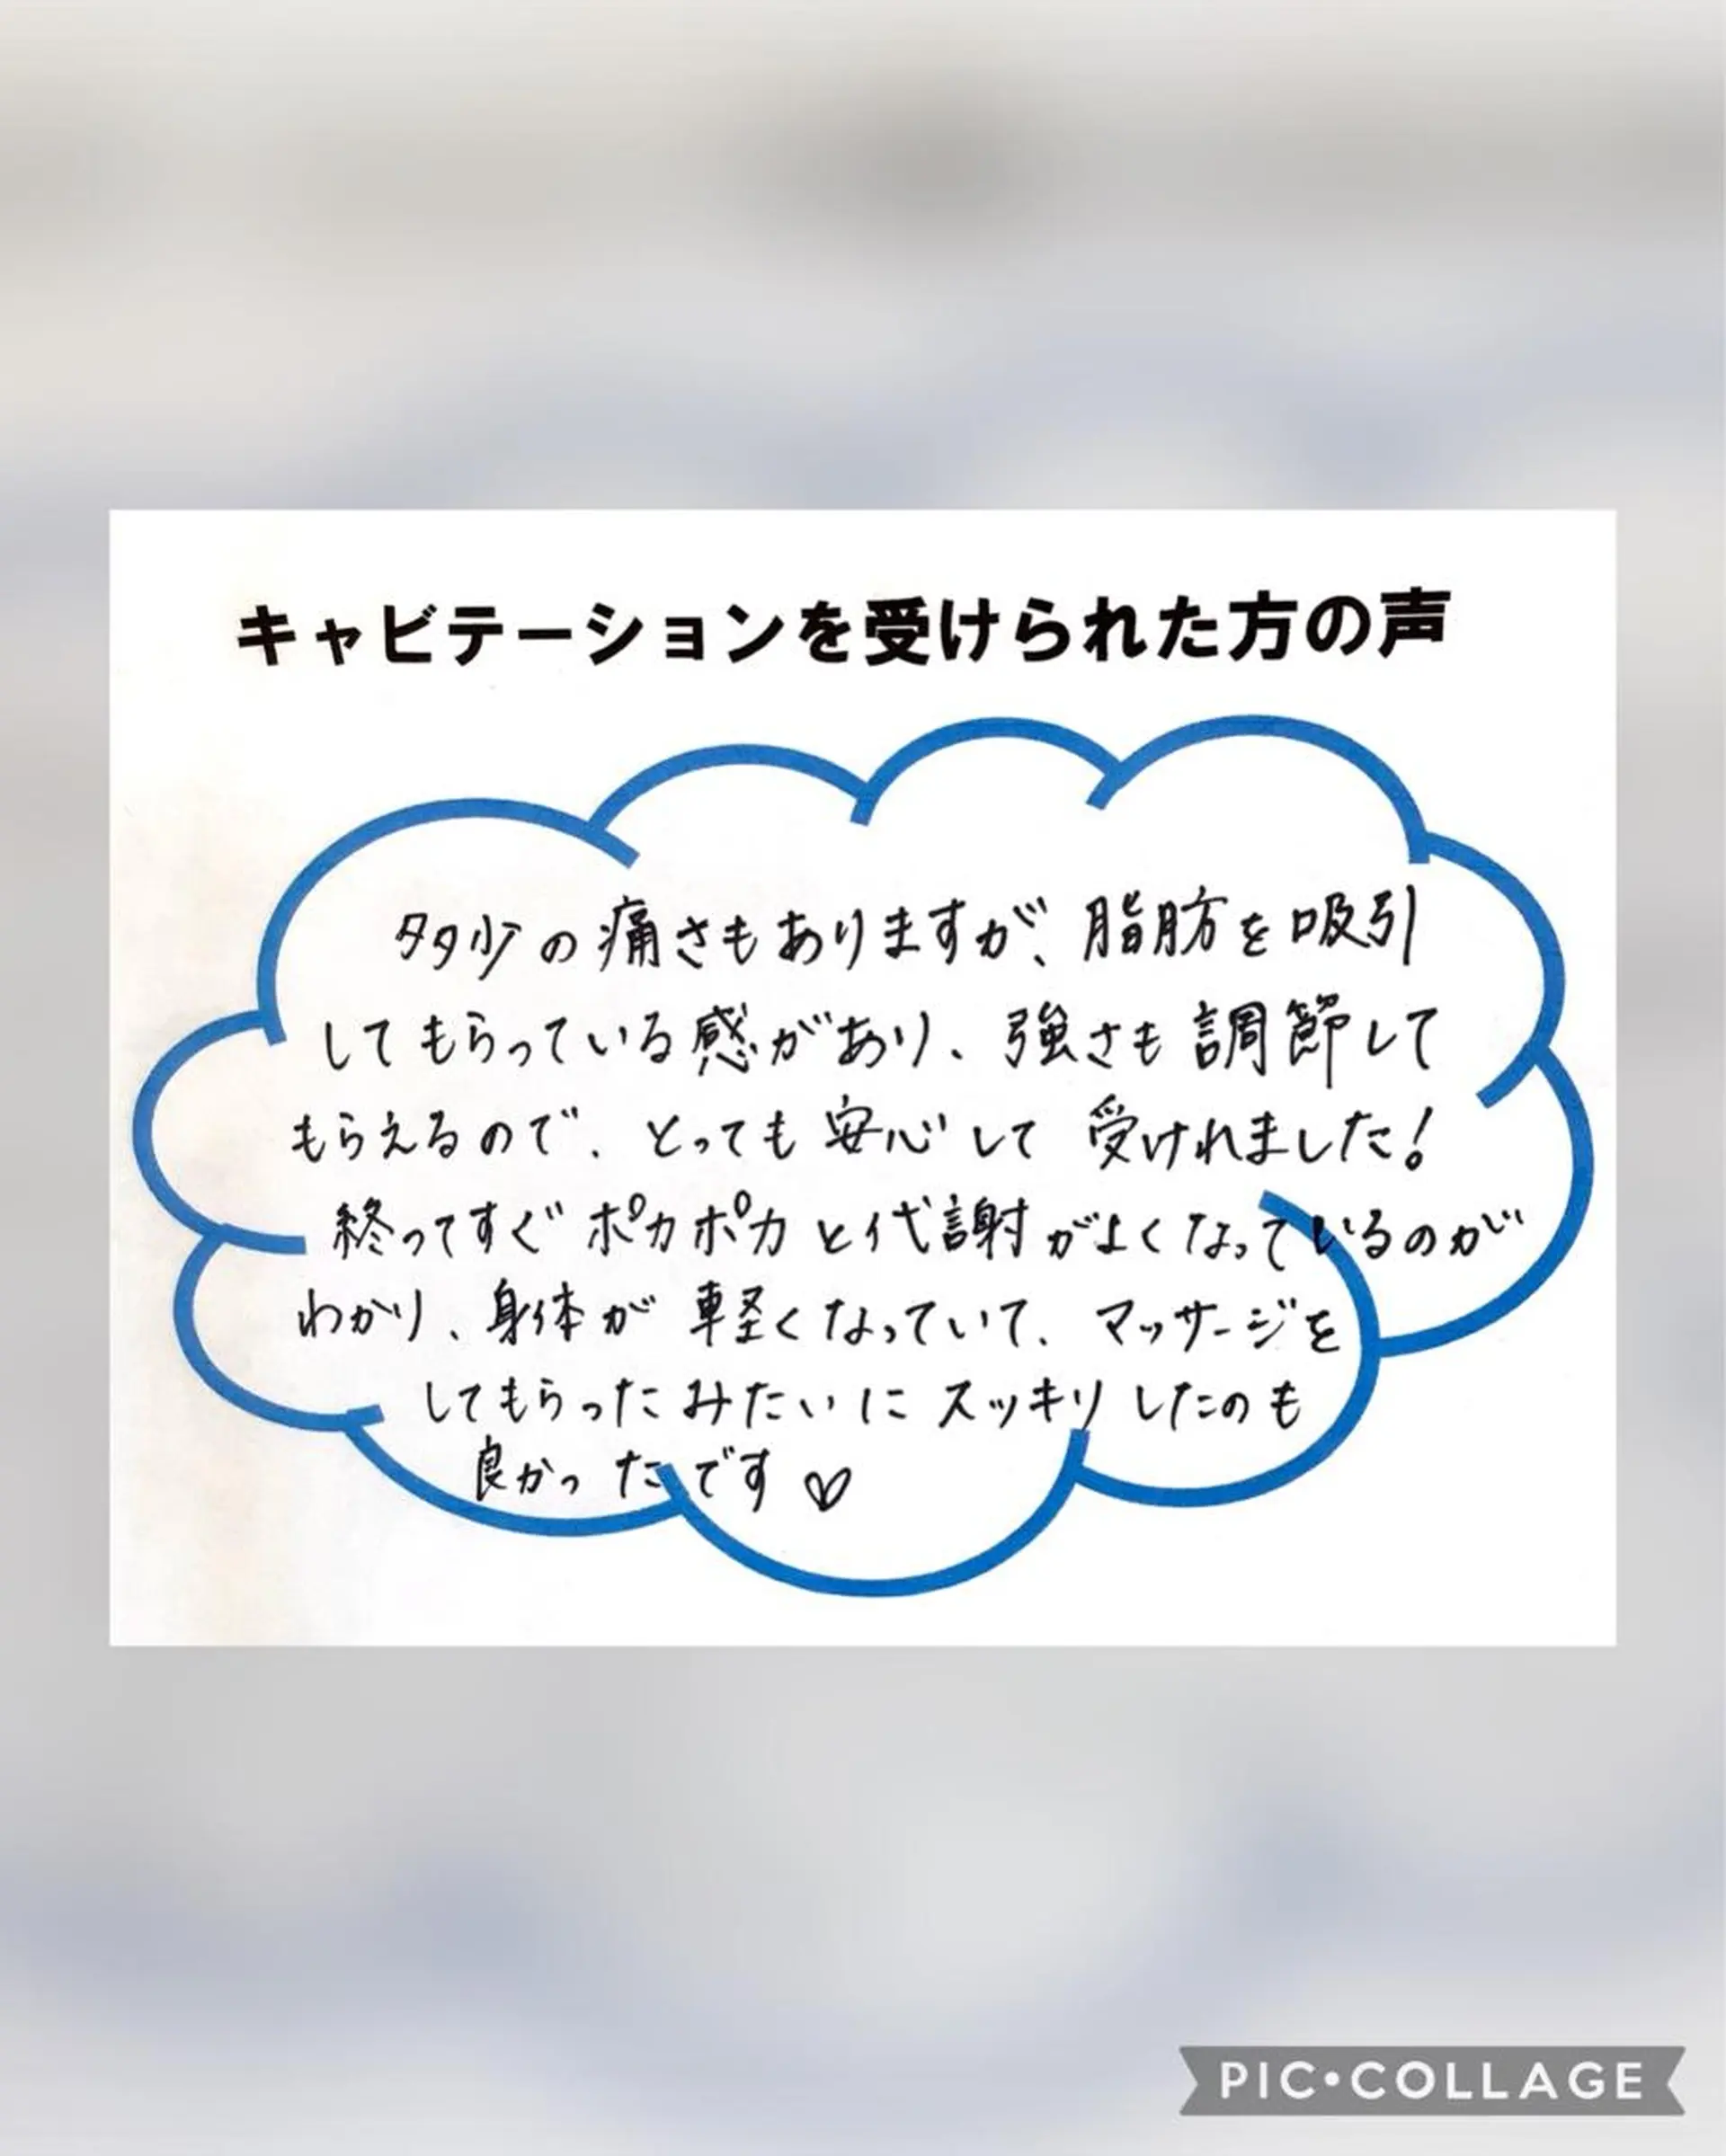 キャビテーションを受けられた方の声
多少の痛さもありますが、脂肪を吸引
してもらっている感があり、強さも調節して
もらえるので、とっても安心して受けれました!
終ってすぐポカポカと代謝がよくなっているのが
わかり、身体が軽くなっていて、マッサージを
してもらったみたいにスッキリしたのも
良かったです♡
PIC•COLLAGE